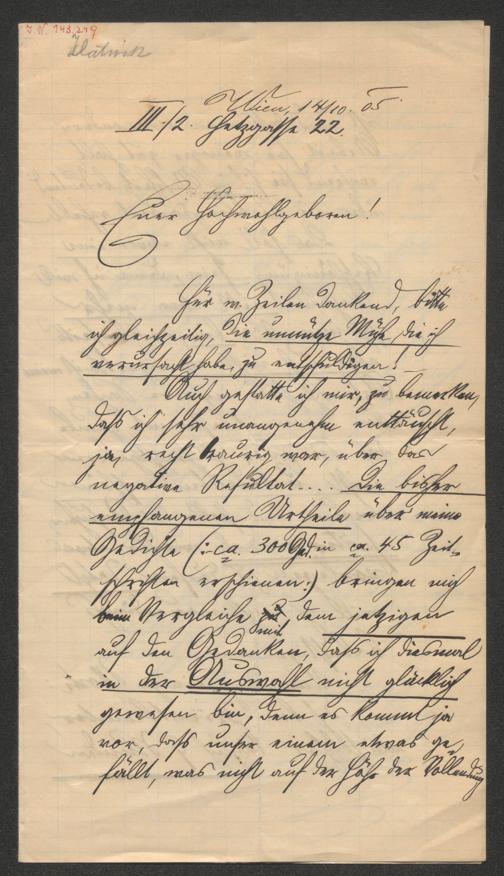 I. N. 143.249
Zlatnik
Wien, 14/10. 05.
III./2. Hetzgasse 22.
Euer Hochwohlgeboren!
Für w. Zeilen dankend, bitte
ich gleichzeitig, die unnütze Mühe, die ich
verursacht habe, zu entschuldigen!
Auch gestatte ich mir, zu bemerken,
dass ich sehr unangenehm enttäuscht,
ja, recht traurig war, über das
negative Resultat.... Die bisher
empfangenen Urtheile über meine
Gedichte (: ca. 300 Ged. in ca. 45 Zeit-
schriften erschienen:) bringen mich
beim Vergleiche mit dem jetzigen
auf den Gedanken, dass ich diesmal
in der Auswahl nicht glücklich
gewesen bin, denn es kommt ja
vor, dass unser einem etwas ge-
fällt, was nicht auf der Höhe der Vollendung